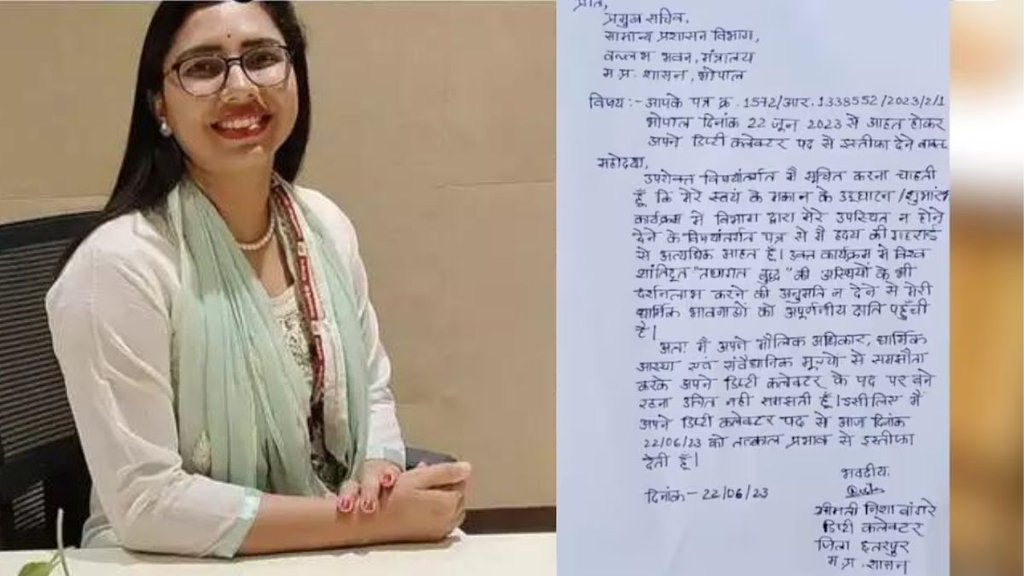 प्रति,
प्रमुख सचिव,
सामान्य प्रशासन विभाग,
वल्लभ भवन, मंत्रालय
म.प्र. शासन, भोपाल
विषय:- आपके पत्र क्र. 1572/आर. 1338552/2023/2/1
भोपाल दिनांक 22 जून 2023 से आहत होकर
अपने डिप्टी कलेक्टर पद से इस्तीफा देने बावत्
महोदया,
उपरोक्त विषयांतर्गत मैं सूचित करना चाहती
हूँ कि मेरे स्वयं के मकान के उद्घाटन/शुभारंभ
कार्यक्रम में विभाग द्वारा मेरे उपस्थित न होने
देने के विषयांतर्गत पत्र से मैं हृदय की गहराई
से अत्यधिक आहत हूँ। उक्त कार्यक्रम में विश्व
शांतिदूत "तथागत बुद्ध" की अस्थियों के भी
दर्शनलाभ करने की अनुमति न देने से मेरी
धार्मिक भावनाओं को अपूर्णनीय क्षति पहुँची
है।
अतः मैं अपने मौलिक अधिकार, धार्मिक
आस्था एवं संवैधानिक मूल्यों से समझौता
करके अपने डिप्टी कलेक्टर के पद पर बने
रहना उचित नहीं समझती हूँ। इसीलिए मैं
अपने डिप्टी कलेक्टर पद से आज दिनांक
22/06/23 को तत्काल प्रभाव से इस्तीफा
देती हूँ।
भवदीय
दिनांक- 22/06/23
श्रीमती निशा बांगरे
डिप्टी कलेक्टर
जिला छतरपुर
म.प्र. शासन